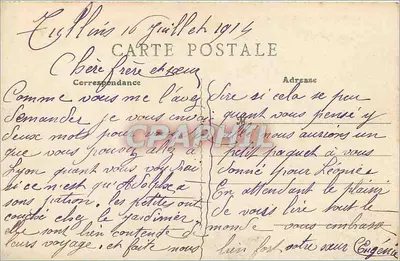 16 Juillet 1914
CARTE POSTALE
Chere frère et sœur
Correspondance
Adresse
Comme vous me l'avez
demander je vous
deux mots pour
que vous pouvez
Lyon quant vous
si ce n'est
sa les petites ont
couché chez le jardinier
elle sont bien contente de
leurs voyage, et faite nous
dire si cela se peu
quant vous pensé y
nous aurons un
petit paquet a vous
donné pour Léonie
En attendant le plaisir
de vous lire tout le
monde vous embrasse
bien fort votre sœur Eugénie